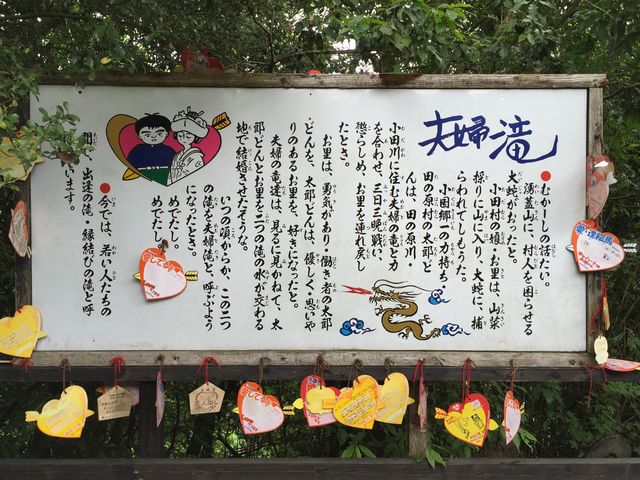 夫婦滝
●むかーしの話だ。
涌蓋山に、村人を困らせる
大蛇がおったと。
小田村の娘・お里は、山菜
採りに山に入り、大蛇に、捕
らわれてしもうた。
小国郷一の力持ち
田の原村の太郎ど
んは、田の原川・
小田川に住む夫婦の竜と力
を合わせ、三日三晩戦い、
懲らしめ、お里を連れ戻し
たとき。
お里は、勇気があり・働き者の太郎
どんを、太郎どんは、優しく・思いや
りのあるお里を、好きになったと。
夫婦の竜達は、見るに見かねて、太
郎どんとお里を二つの滝の水が交わる
地で結婚させたそうな。
いつの頃からか、この二つ
の滝を夫婦滝と、呼ぶよう
になったとき。
めでたし。
めでたし。
●今では、若い人たちの
間で、出逢の滝・縁結びの滝と呼
います。